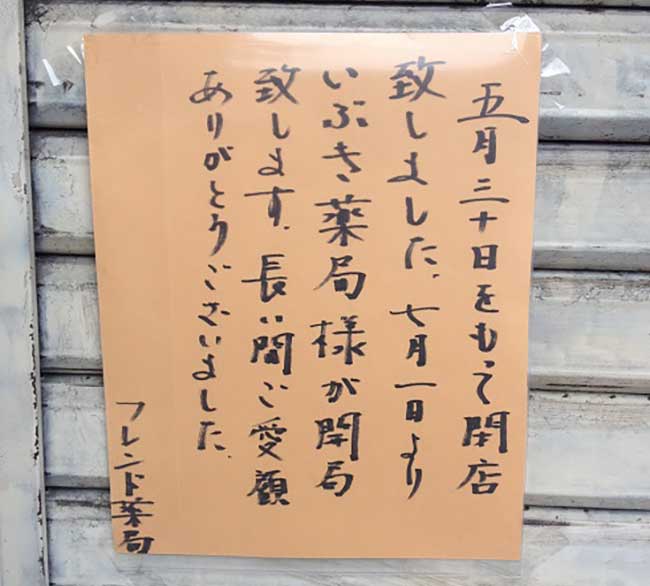 五月三十日をもって閉店
致しました。七月一日より
いぶき薬局様が開局
致します。長い間ご愛顧
ありがとうございました。
フレンド薬局